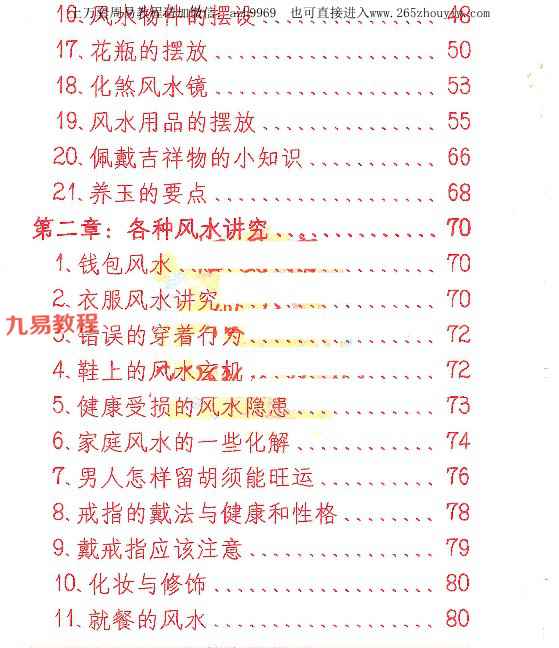 16.风水物件的摆设..............48
17.花瓶的摆放..............50
18.化煞风水镜..............53
19.风水用品的放..............55
20.佩戴吉祥物的小知识..............66
21.养玉的要点..............68
第二章:各种风水讲究..............70
1.钱包风水..............70
2.衣服风水讲究..............70
九易教程
3.错误的穿着行为..............72
4.鞋上的风水玄机..............72
5.健康受损的风水隐患..............73
6.家庭风水的一些化解..............74
7.男人怎样留胡须能旺运..............76
8.戒指的戴法与健康和性格..............78
9.戴戒指应该注意..............79
10.化妆与修饰..............80
11.就餐的风水..............80